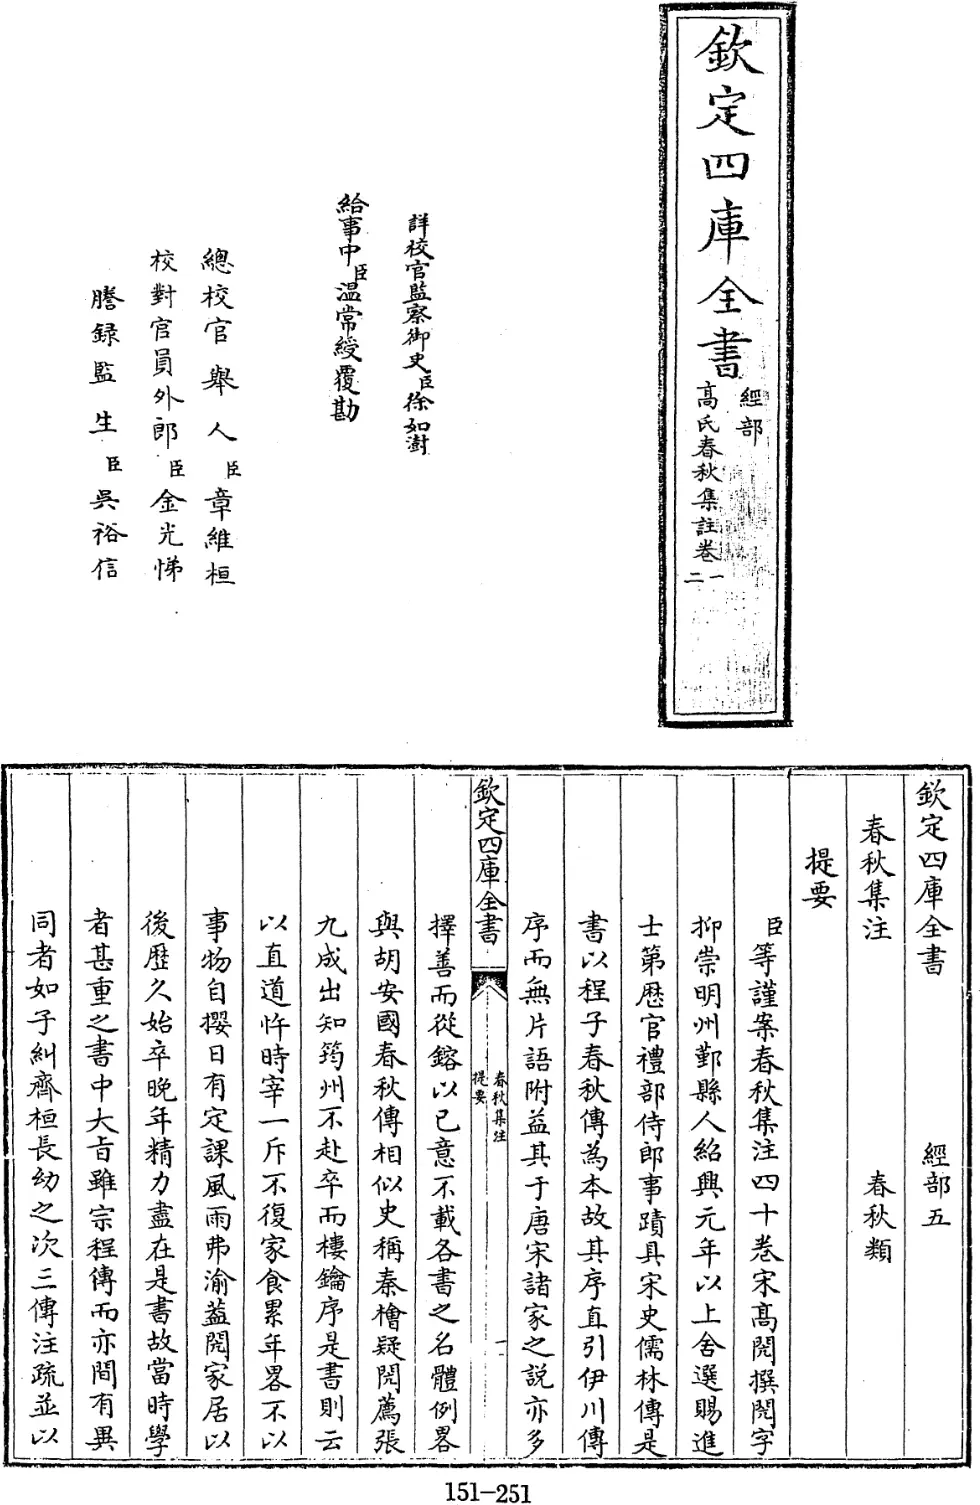 欽定四庫全書
經部
高氏春秋集註卷一
二
詳校官監察御史臣徐如澍
給事中臣温常綬覆勘
總校官舉人臣章維桓
校對官員外郎臣金光悌
謄録監生臣吳裕信
欽定四庫全書 經部五
春秋集注 春秋類
提要
臣等謹案春秋集注四十卷宋髙閌撰閌字
抑崇明州鄞縣人紹興元年以上舍選賜進
士第歴官禮部侍郎事蹟具宋史儒林傳是
書以程子春秋傳為本故其序直引伊川傳
序而無片語附益其于唐宋諸家之説亦多
欽定四庫全書
春秋集注
提要
一
擇善而從鎔以己意不載各書之名體例畧
與胡安國春秋傳相似史稱秦檜疑閌薦張
九成出知筠州不赴卒而樓鑰序是書則云
以直道忤時宰一斥不復家食累年畧不以
事物自攖日有定課風雨弗渝葢閌家居以
後歷久始卒晚年精力盡在是書故當時學
者甚重之書中大旨雖宗程傳而亦間有異
同者如子糾齊桓長幼之次三傳注疏並以
151-251